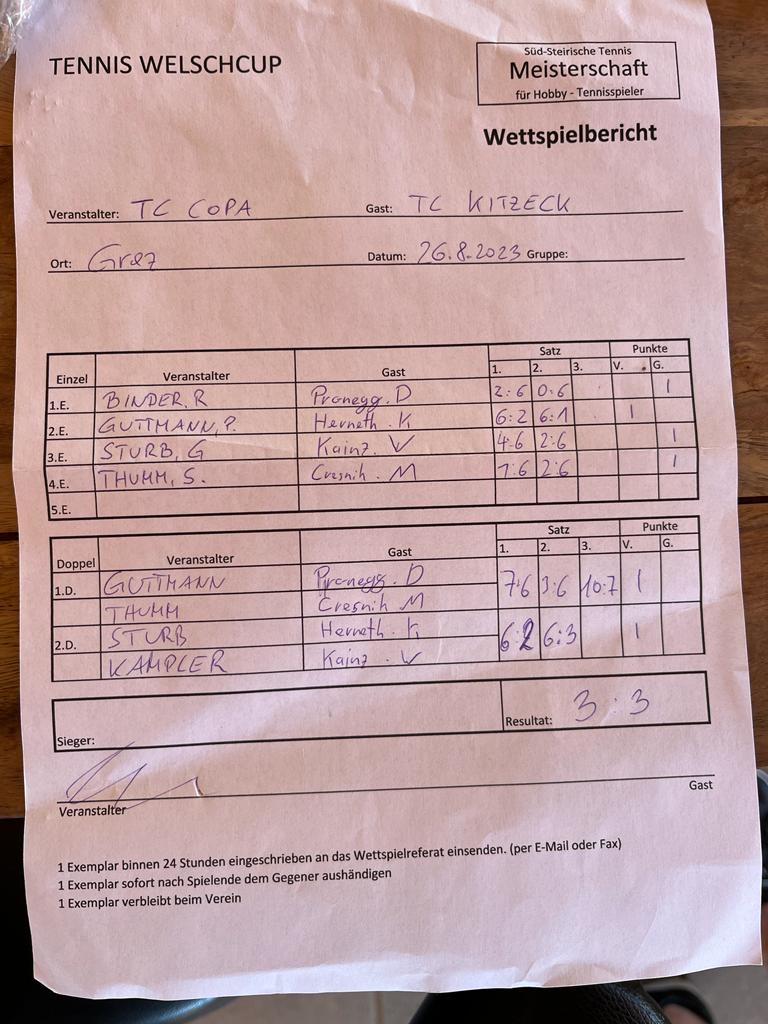 TENNIS WELSCHCUP
Süd-Steirische Tennis
Meisterschaft
für Hobby - Tennisspieler
Wettspielbericht
Veranstalter: TC COPA Gast: TC KITZECK
Ort: Graz Datum: 26.8.2023 Gruppe:
Einzel Veranstalter Gast Satz Punkte
1. 2. 3. V. G.
1.E. BINDER, R Pronegg. D 2:6 0:6 1
2.E. GUTTMANN, P. Herneth. K 6:2 6:1 1
3.E. STURB, G Kainz. W 4:6 2:6 1
4.E. THUMM, S. Cresnik. M 1:6 2:6 1
5.E.
Doppel Veranstalter Gast Satz Punkte
1. 2. 3. V. G.
1.D. GUTTMANN Pronegg. D 7:6 3:6 10:7 1
THUMM Cresnik M
2.D. STURB Herneth. K 6:2 6:3 1
KAMPLER Kainz. W
Sieger: Resultat: 3:3
Veranstalter Gast
1 Exemplar binnen 24 Stunden eingeschrieben an das Wettspielreferat einsenden. (per E-Mail oder Fax)
1 Exemplar sofort nach Spielende dem Gegener aushändigen
1 Exemplar verbleibt beim Verein